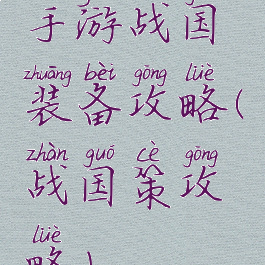 手游战国
zhuāng bèi gōng lüè
装备攻略(
zhàn guó cè gōng
战国策攻
lüè
略)